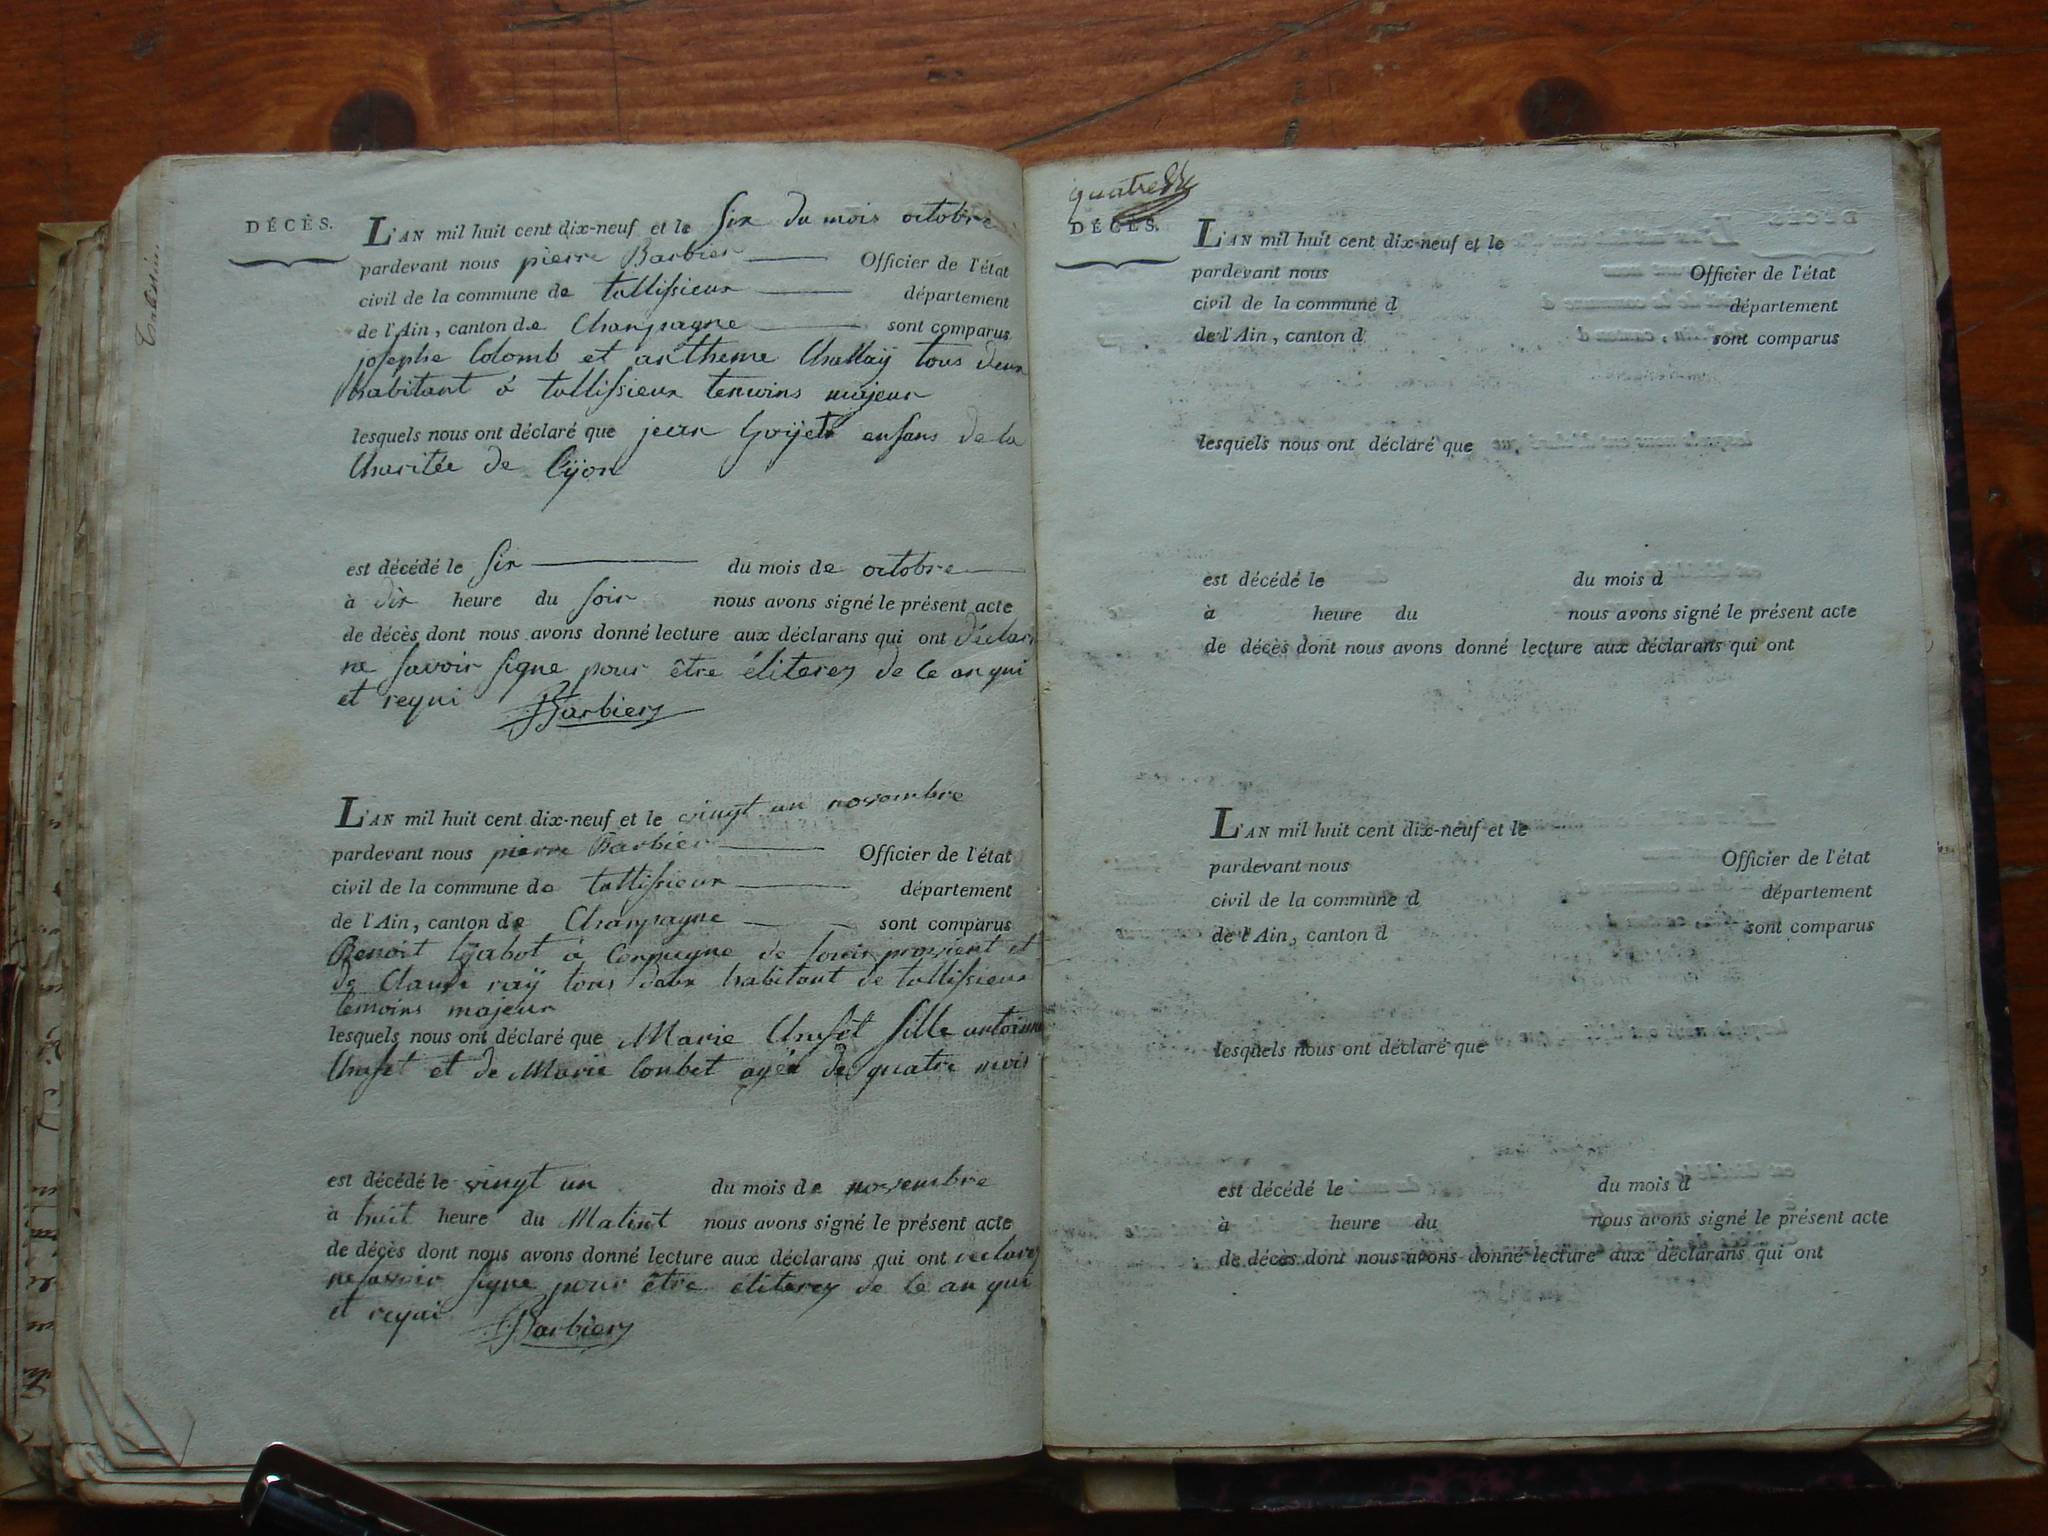 DÉCÈS.
L'AN mil huit cent dix-neuf et le six du mois octobre
pardevant nous pierre Barbier Officier de l'état
civil de la commune de tallissieux département
de l'Ain, canton de Champagne sont comparus
josephe Colomb et artheme Challaÿ tous deux
habitant à tallissieux temoins majeur
lesquels nous ont déclaré que jean enfans de la
Charitée de Lÿon
est décédé le six du mois de octobre
à dix heure du soir nous avons signé le présent acte
de décès dont nous avons donné lecture aux déclarans qui ont
ne savoir signe pour être éliterez de ce an qui
et requi Barbier
L'AN mil huit cent dix-neuf et le vingt un novembre
pardevant nous pierre Barbier Officier de l'état
civil de la commune de tallissieux département
de l'Ain, canton de Champagne sont comparus
Benoit à de et
de Claude raÿ tous deux habitant de tallissieux
temoins majeur
lesquels nous ont déclaré que Marie fille antoinne
et de Marie agéé de quatre mois
est décédé le vingt un du mois de novembre
à huit heure du Matint nous avons signé le présent acte
de décès dont nous avons donné lecture aux déclarans qui ont
ne savoir signe pour être éliterez de ce an qui
et requi Barbier
quatre
DÉCÈS.
L'AN mil huit cent dix-neuf et le
pardevant nous Officier de l'état
civil de la commune d département
de l'Ain, canton d sont comparus
lesquels nous ont déclaré que
est décédé le du mois d
à heure du nous avons signé le présent acte
de décès dont nous avons donné lecture aux déclarans qui ont
L'AN mil huit cent dix-neuf et le
pardevant nous Officier de l'état
civil de la commune d département
de l'Ain, canton d sont comparus
lesquels nous ont déclaré que
est décédé le du mois d
à heure du nous avons signé le présent acte
de décès dont nous avons donné lecture aux déclarans qui ont